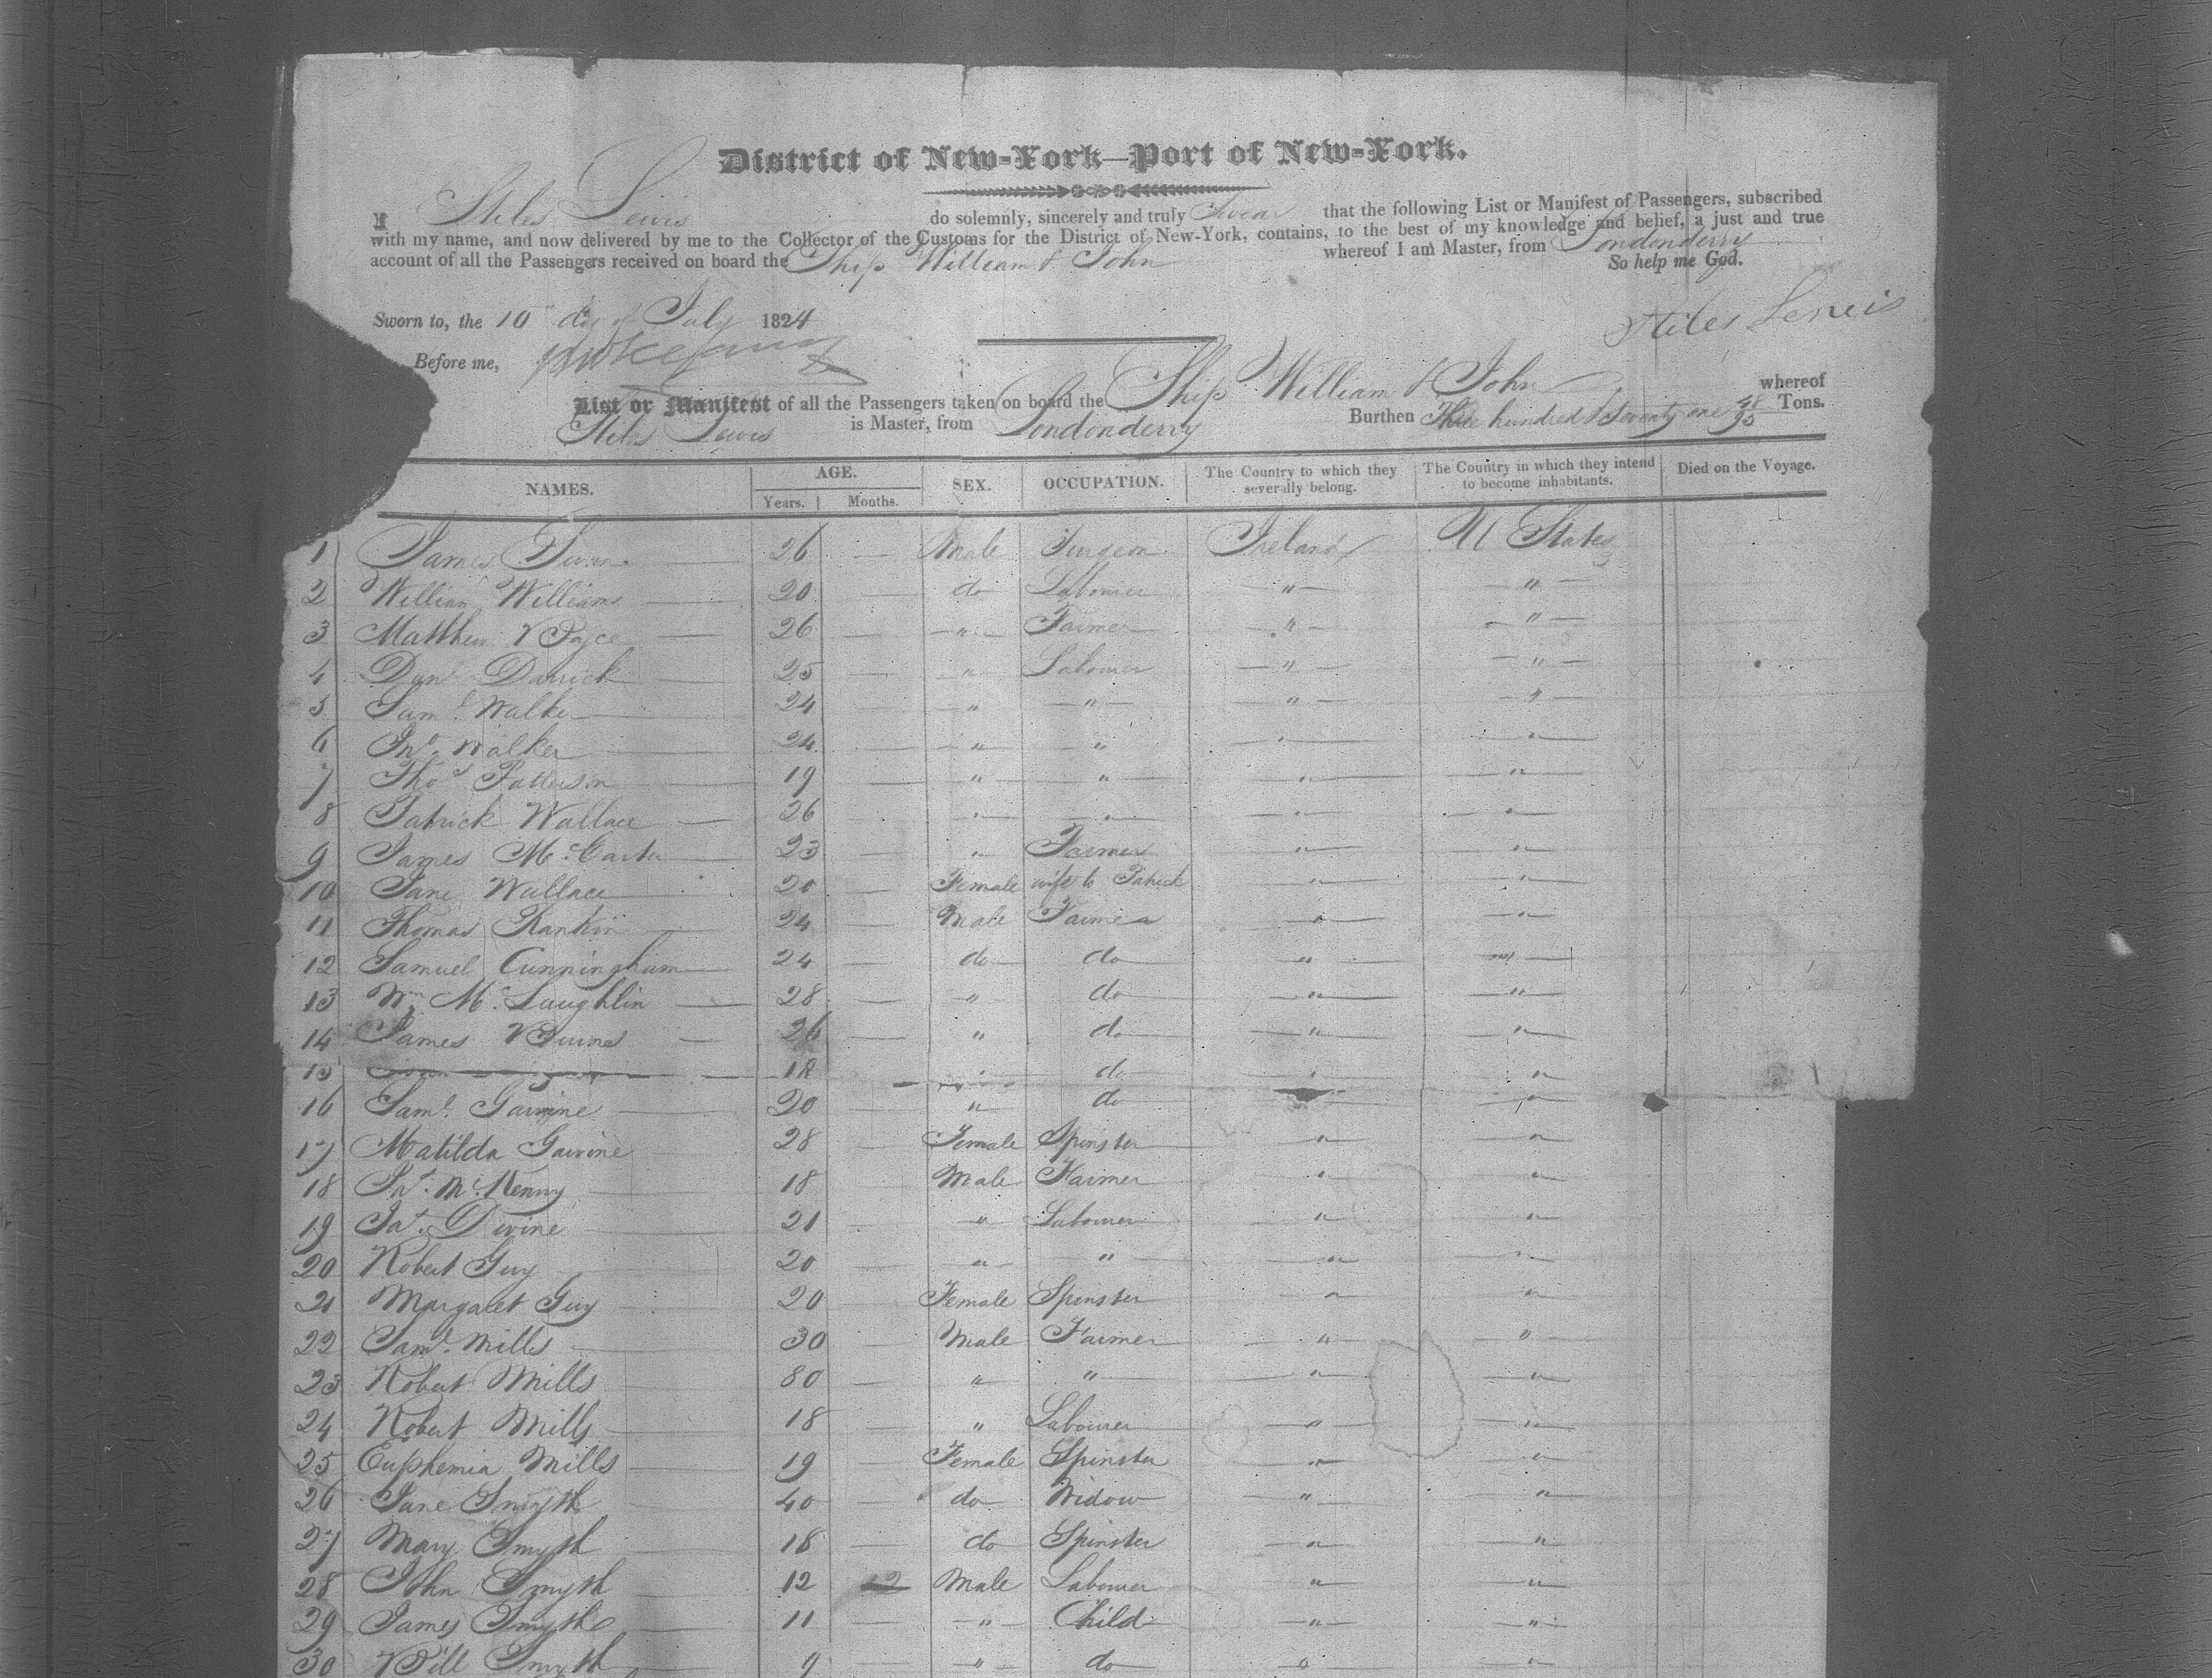 District of New-York—Port of New-York.
I Stiles Lewis do solemnly, sincerely and truly Swear that the following List or Manifest of Passengers, subscribed
with my name, and now delivered by me to the Collector of the Customs for the District of New-York, contains, to the best of my knowledge and belief, a just and true
account of all the Passengers received on board the Ship William & John whereof I am Master, from Londonderry
So help me God.
Sworn to, the 10 day of July 1824
Stiles Lewis
Before me,
List or Manifest of all the Passengers taken on board the Ship William & John whereof
Stiles Lewis is Master, from Londonderry Burthen Three hundred & Seventy one 48/95 Tons.
NAMES. AGE. Years. Months. SEX. OCCUPATION. The Country to which they severally belong. The Country in which they intend to become inhabitants. Died on the Voyage.
1 James 26 — Male Surgeon Ireland U States
2 William Williams 20 — do Labourer " "
3 Matthew 26 — " Farmer " "
4 Danl Darrick 25 — " Labourer " "
5 Saml. Walker 24 — " " " "
6 Jno. Walker 24 — " " " "
7 Thos Patterson 19 — " " " "
8 Patrick Wallace 26 — " " " "
9 James McCarter 23 — " Farmer " "
10 Jane Wallace 20 — Female wife to Patrick " "
11 Thomas Rankin 24 — Male Farmer " "
12 Samuel Cunningham 24 — do do " "
13 Wm McLaughlin 28 — " do " "
14 James Burns — " do " "
15 18 do " "
16 Saml. 20 — " do " "
17 Matilda 28 — Female Spinster " "
18 Pat. McKenny 18 — Male Farmer " "
19 Pat. Divine 21 — " Labourer " "
20 Robert Guy 20 — " " " "
21 Margaret Guy 20 — Female Spinster " "
22 Saml. Mills 30 — Male Farmer " "
23 Robert Mills 80 — " " " "
24 Robert Mills 18 — " Labourer " "
25 Euphemia Mills 19 — Female Spinster " "
26 Jane Smyth 40 — do Widow " "
27 Mary Smyth 18 — do Spinster " "
28 John Smyth 12 12 Male Labourer " "
29 James Smyth 11 — " Child " "
30 Bill Smyth 9 — " do " "